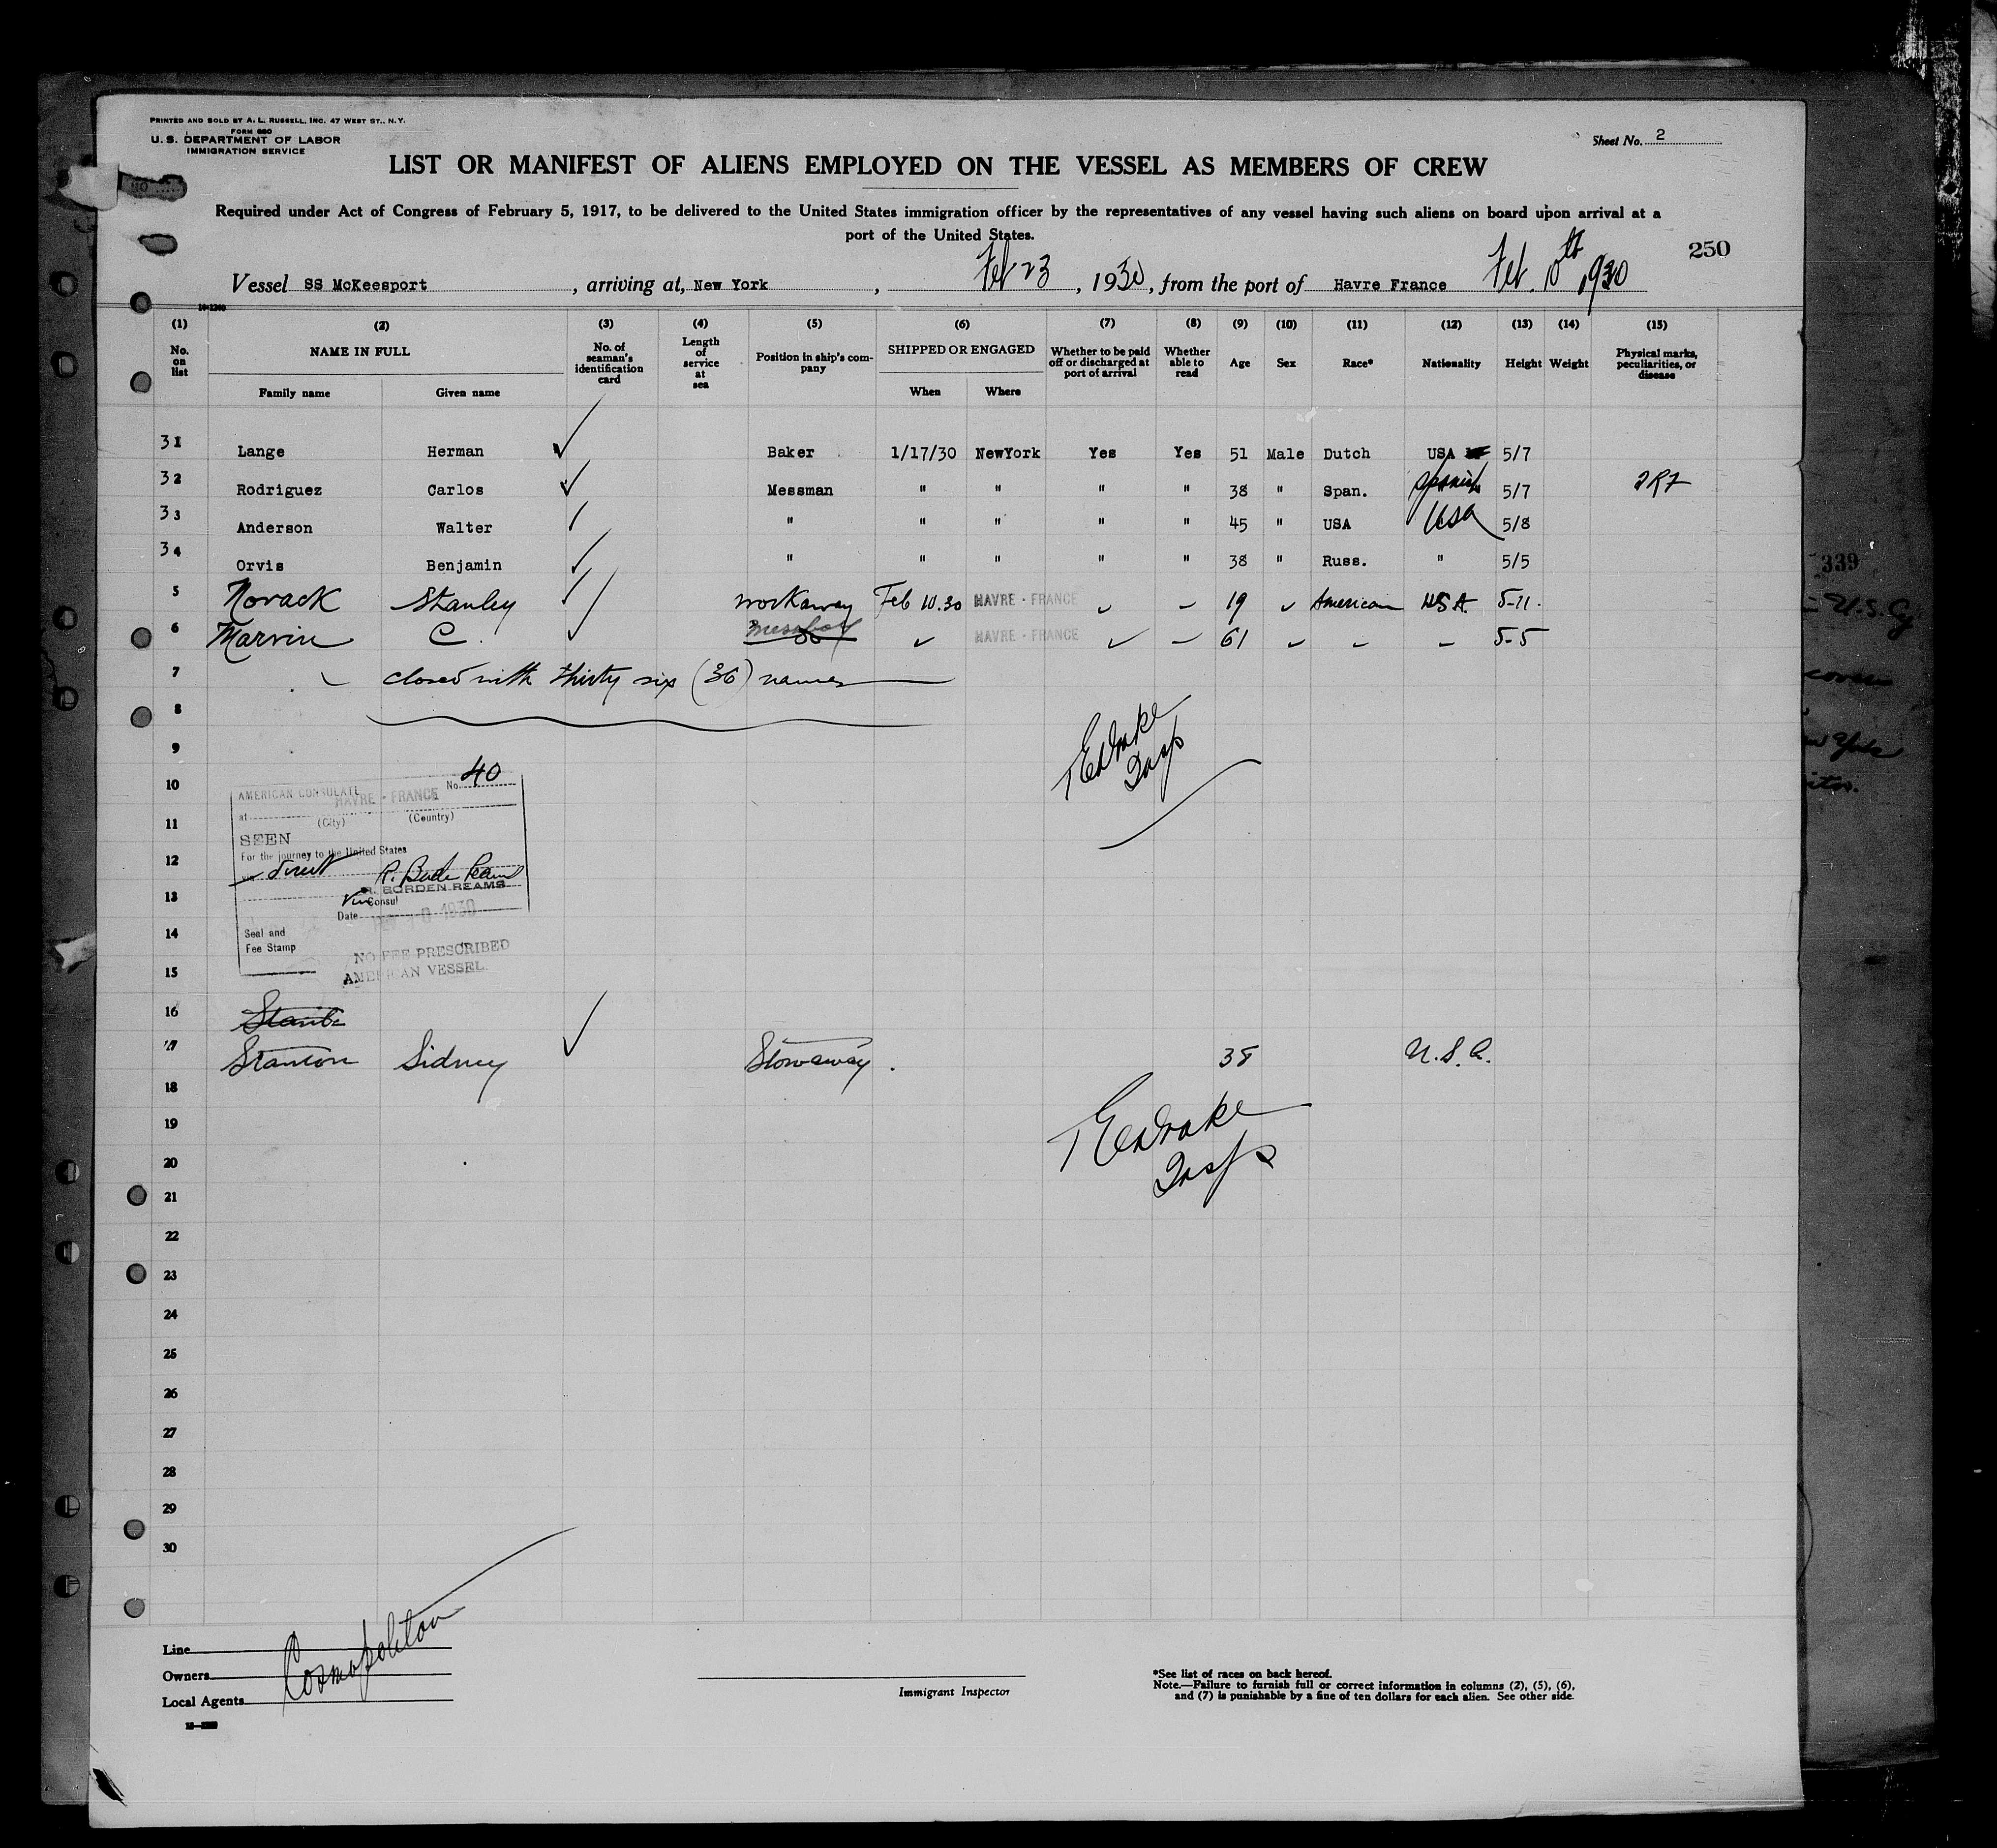 PRINTED AND SOLD BY A. L. RUSSELL, INC. 47 WEST ST., N.Y.
FORM 680
U. S. DEPARTMENT OF LABOR
IMMIGRATION SERVICE
Sheet No. 2
LIST OR MANIFEST OF ALIENS EMPLOYED ON THE VESSEL AS MEMBERS OF CREW
Required under Act of Congress of February 5, 1917, to be delivered to the United States immigration officer by the representatives of any vessel having such aliens on board upon arrival at a
port of the United States.
250
Vessel SS McKeesport, arriving at, New York, Feb 23, 1930, from the port of Havre France Feb. 10th 1930
(1) (2) (3) (4) (5) (6) (7) (8) (9) (10) (11) (12) (13) (14) (15)
No. on list NAME IN FULL Family name Given name No. of seaman's identification card Length of service at sea Position in ship's company SHIPPED OR ENGAGED When Where Whether to be paid off or discharged at port of arrival Whether able to read Age Sex Race* Nationality Height Weight Physical marks, peculiarities, or disease
31 Lange Herman Baker 1/17/30 NewYork Yes Yes 51 Male Dutch USA 5/7
32 Rodriguez Carlos Messman " " " " 38 " Span. Spanish 5/7 2R7
33 Anderson Walter " " " " " 45 " USA USA 5/8
34 Orvis Benjamin " " " " " 38 " Russ. " 5/5
5 Novack Stanley workaway Feb 10.30 HAVRE - FRANCE 19 American USA 5-11.
6 Marvin C. messboy HAVRE - FRANCE 61 5-5
7 closed with thirty six (36) names
8
9
TE Drake
Insp
10
AMERICAN CONSULATE No. 40
at HAVRE - FRANCE
(City) (Country)
11
SEEN
For the journey to the United States
12
via direct
R. BORDEN REAMS
13
Vice Consul
Date 1930
14
Seal and
Fee Stamp
NO FEE PRESCRIBED
AMERICAN VESSEL
15
16
17 Stanton Sidney Stowaway. 38 U.S.A.
18
TE Drake
Insp
19
20
21
22
23
24
25
26
27
28
29
30
Line
Owners Cosmopolitan
Local Agents
Immigrant Inspector
*See list of races on back hereof.
Note.—Failure to furnish full or correct information in columns (2), (5), (6),
and (7) is punishable by a fine of ten dollars for each alien. See other side.
339
U.S.